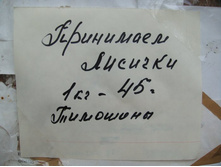 Принимаем
Лисички
1 кг - 45=
Тимошина